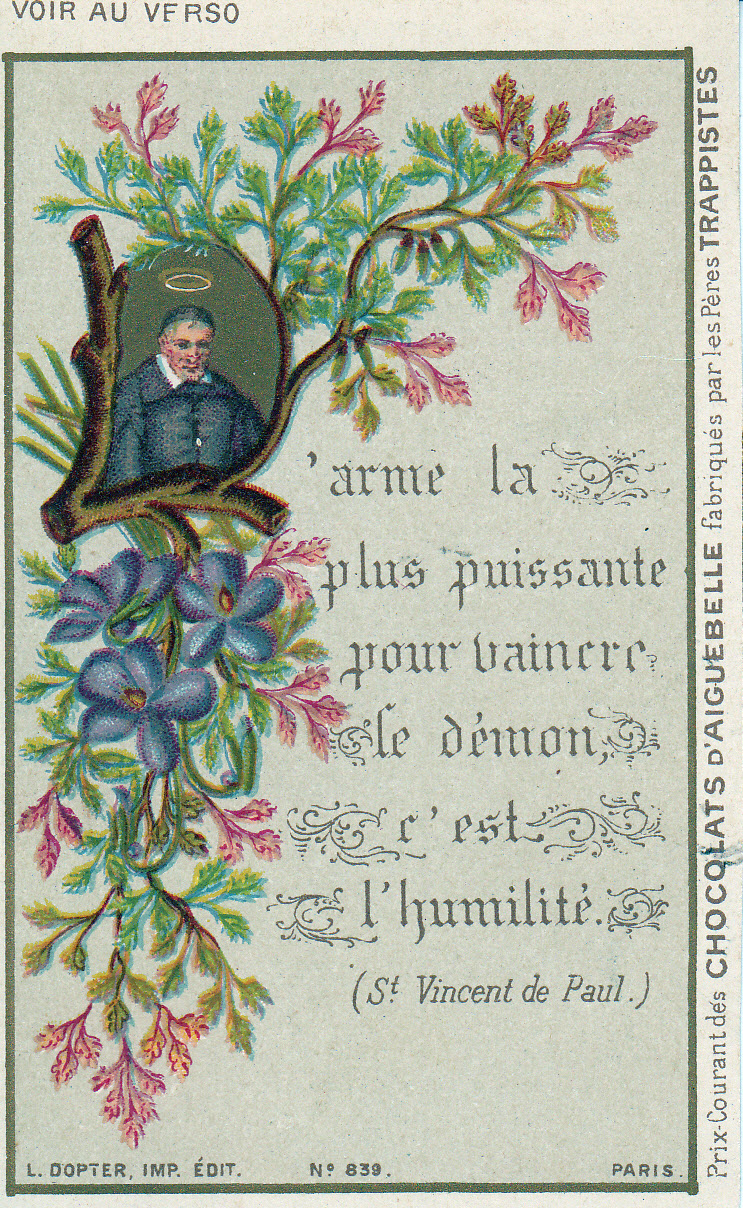 VOIR AU VERSO
L'arme la
plus puissante
pour vaincre
le démon,
c'est
l'humilité.
(St Vincent de Paul.)
L. DOPTER, IMP. ÉDIT. No 839. PARIS.
Prix-Courant des CHOCOLATS D'AIGUEBELLE fabriqués par les Pères TRAPPISTES